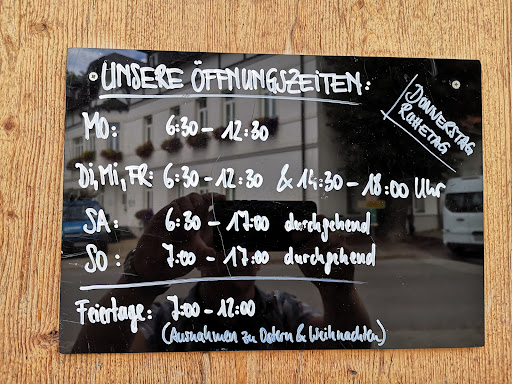 UNSERE ÖFFNUNGSZEITEN:
DONNERSTAG
RUHETAG
MO: 6:30 - 12:30
Di, Mi, FR: 6:30 - 12:30 & 14:30 - 18:00 Uhr
SA: 6:30 - 17:00 durchgehend
SO: 7:00 - 17:00 durchgehend
Feiertage: 7:00 - 12:00
(Ausnahmen zu Ostern & Weihnachten)